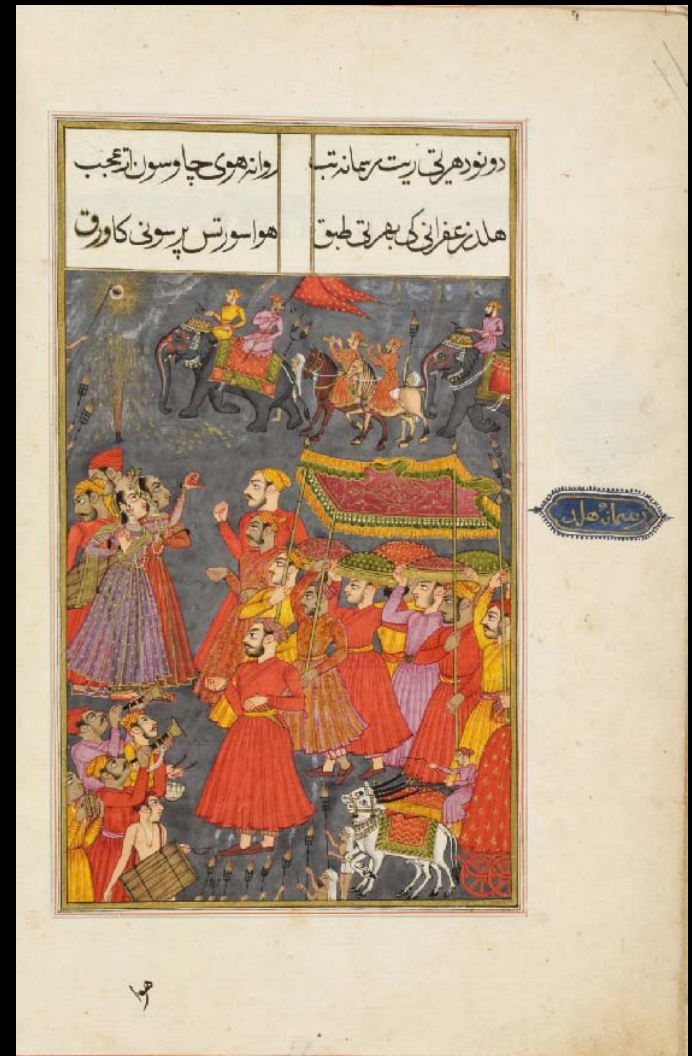 دونو دھرتی ریت رسمانہ تب روانہ ھوی چاو سون از عجب
ھلد زعفرانی کی بھرتی طبق ھوا سورتس پر سونی کا ورق
ھلد
ھوا